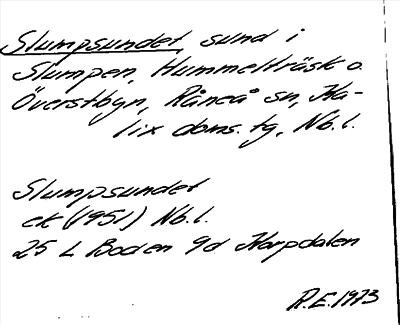 Slumpsundet, sund i
Slumpen, Hummelträsk o.
Överstbyn, Råneå sn, Ka-
lix doms. tg, Nb. l.
Slumpsundet
ek (1951) Nb. l.
25 L Boden 9d Korpdalen
R.E. 1973